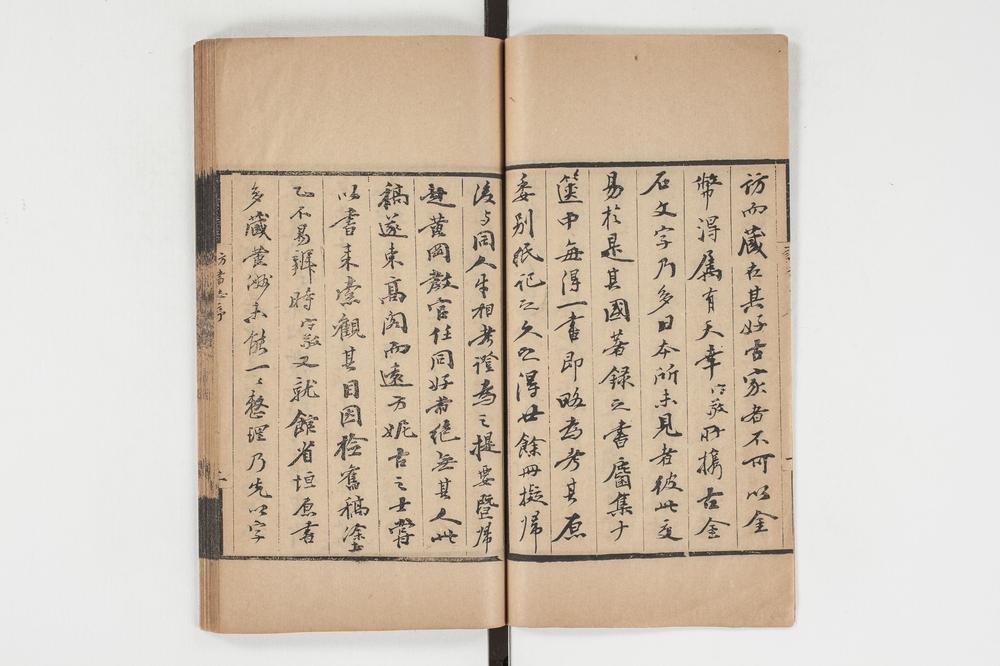 訪而藏在其好古家者不可以金
幣得屬有天幸守敬所攜古金
石文字乃多日本所未見者彼此交
易於是其國著錄之書麕集于
篋中每得一書即略為考其原
委別紙記之久之得廿餘冊擬歸
後與同人互相考證為之提要暨歸
赴黃岡敎官任同好者絕無其人此
稿遂束高閣而遠方妮古之士嘗
以書來索觀其目因檢舊稿塗
乙不易辨時守敬又就館省垣原書
多藏黃州未能一〻整理乃先以字
訪書志序